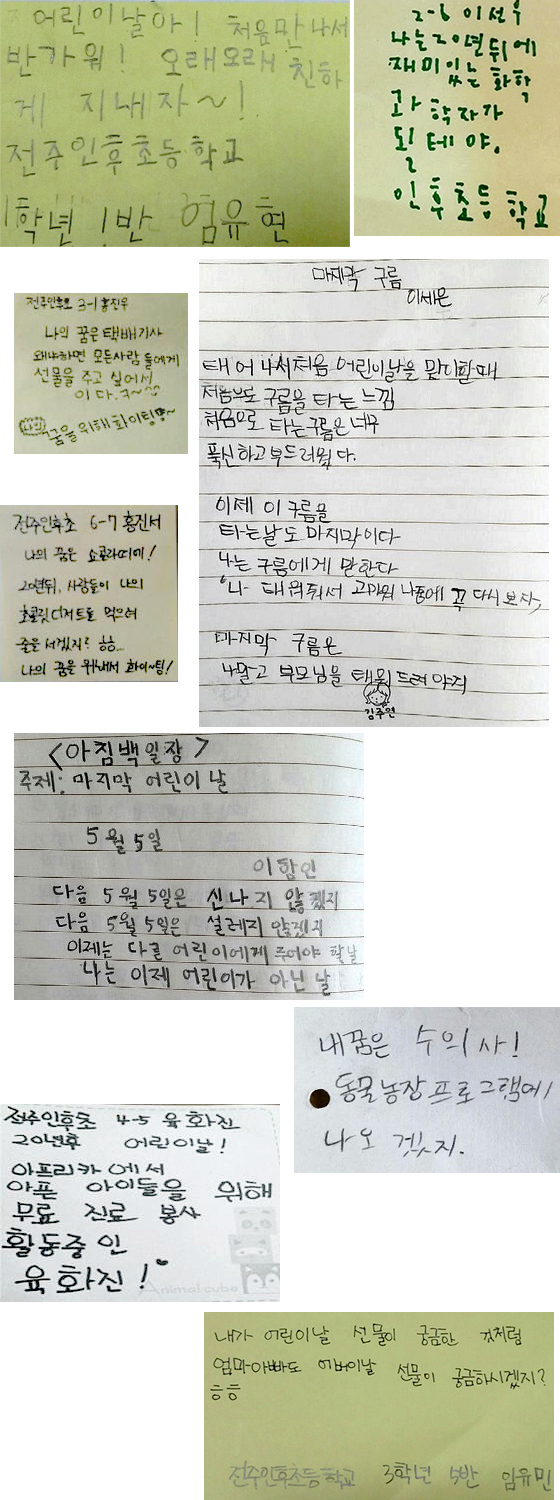 어린이날아! 처음만나서
반가워! 오래오래 친하
게 지내자~!
전주인후초등학교
1학년 1반 엄유현
2-6 이선우
나는 20년뒤에
재미있는 화학
과학자가
될테야.
인후초등학교
전주인후초 3-1 홍진우
나의 꿈은 택배기사
왜냐하면 모든사람들에게
선물을 주고 싶어서
이다.
나의 꿈을 위해 화이팅!~
마지막 구름
이세은
태어나서처음 어린이날을 맞이할때
처음으로 구름을 타는 느낌
처음으로 타는구름은 너무
푹신하고 부드러웠다.
이제 이 구름을
타는날도 마지막이다
나는 구름에게 말한다
"나 태워줘서 고마워 나중에 꼭 다시보자"
마지막 구름은
나말고 부모님을 태워 드려야지
김주연
전주인후초 6-7 홍진서
나의 꿈은 쇼콜라띠에!
20년뒤, 사람들이 나의
초콜릿 디저트를 먹으려
줄을 서겠지? ㅎㅎ...
나의 꿈을 위해서 화이~팅!
<아침백일장>
주제: 마지막 어린이 날
5월 5일
이함인
다음 5월 5일은 신나지 않겠지
다음 5월 5일은 설레지 않겠지
이제는 다른 어린이에게 주어야 할 날
나는 이제 어린이가 아닌 날
내꿈은 수의사!
동물농장프로그램에
나오겠지.
전주인후초 4-5 육화진
20년후 어린이날!
아프리카에서
아픈 아이들을 위해
무료 진료 봉사
활동중인
육화진!
Animal cube
내가 어린이날 선물이 궁금한 것처럼
엄마아빠도 어버이날 선물이 궁금하시겠지?
ㅎㅎ
전주인후초등학교 3학년 5반 임유민